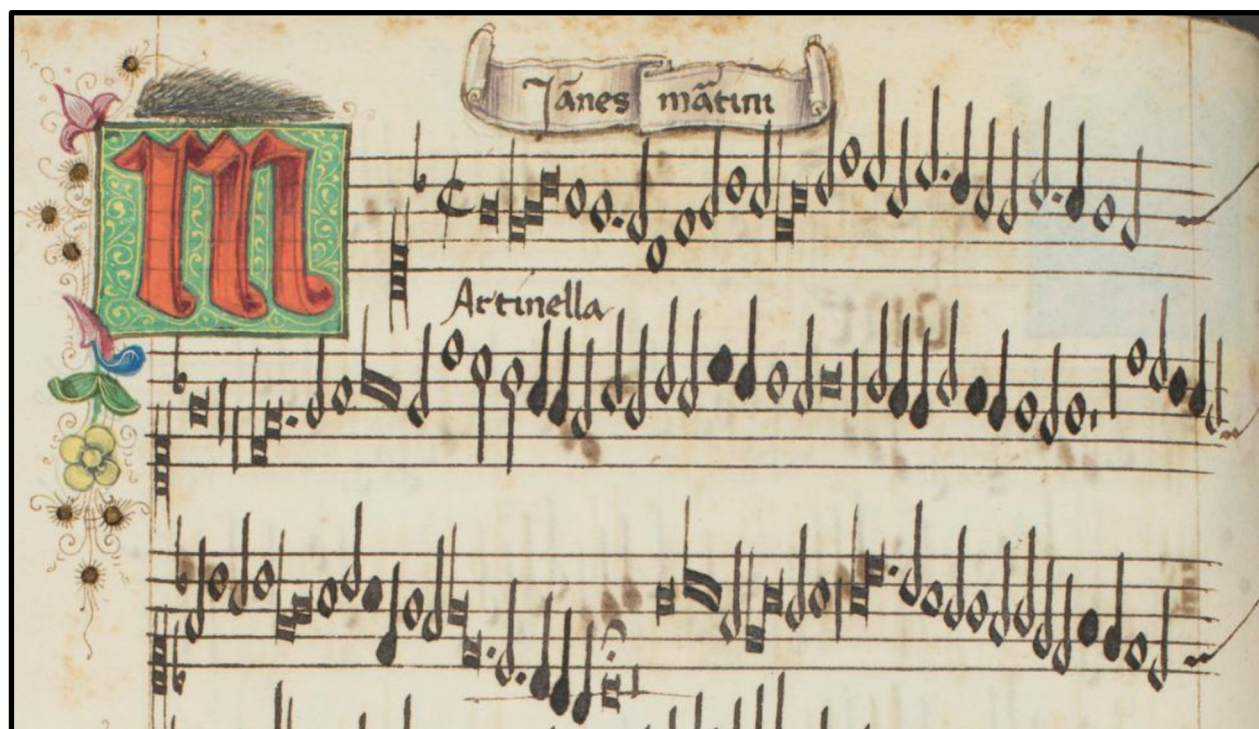 Jãnes mãtini
MArtinella